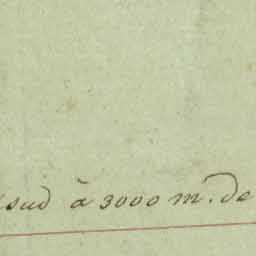 sud à 3000 m. de